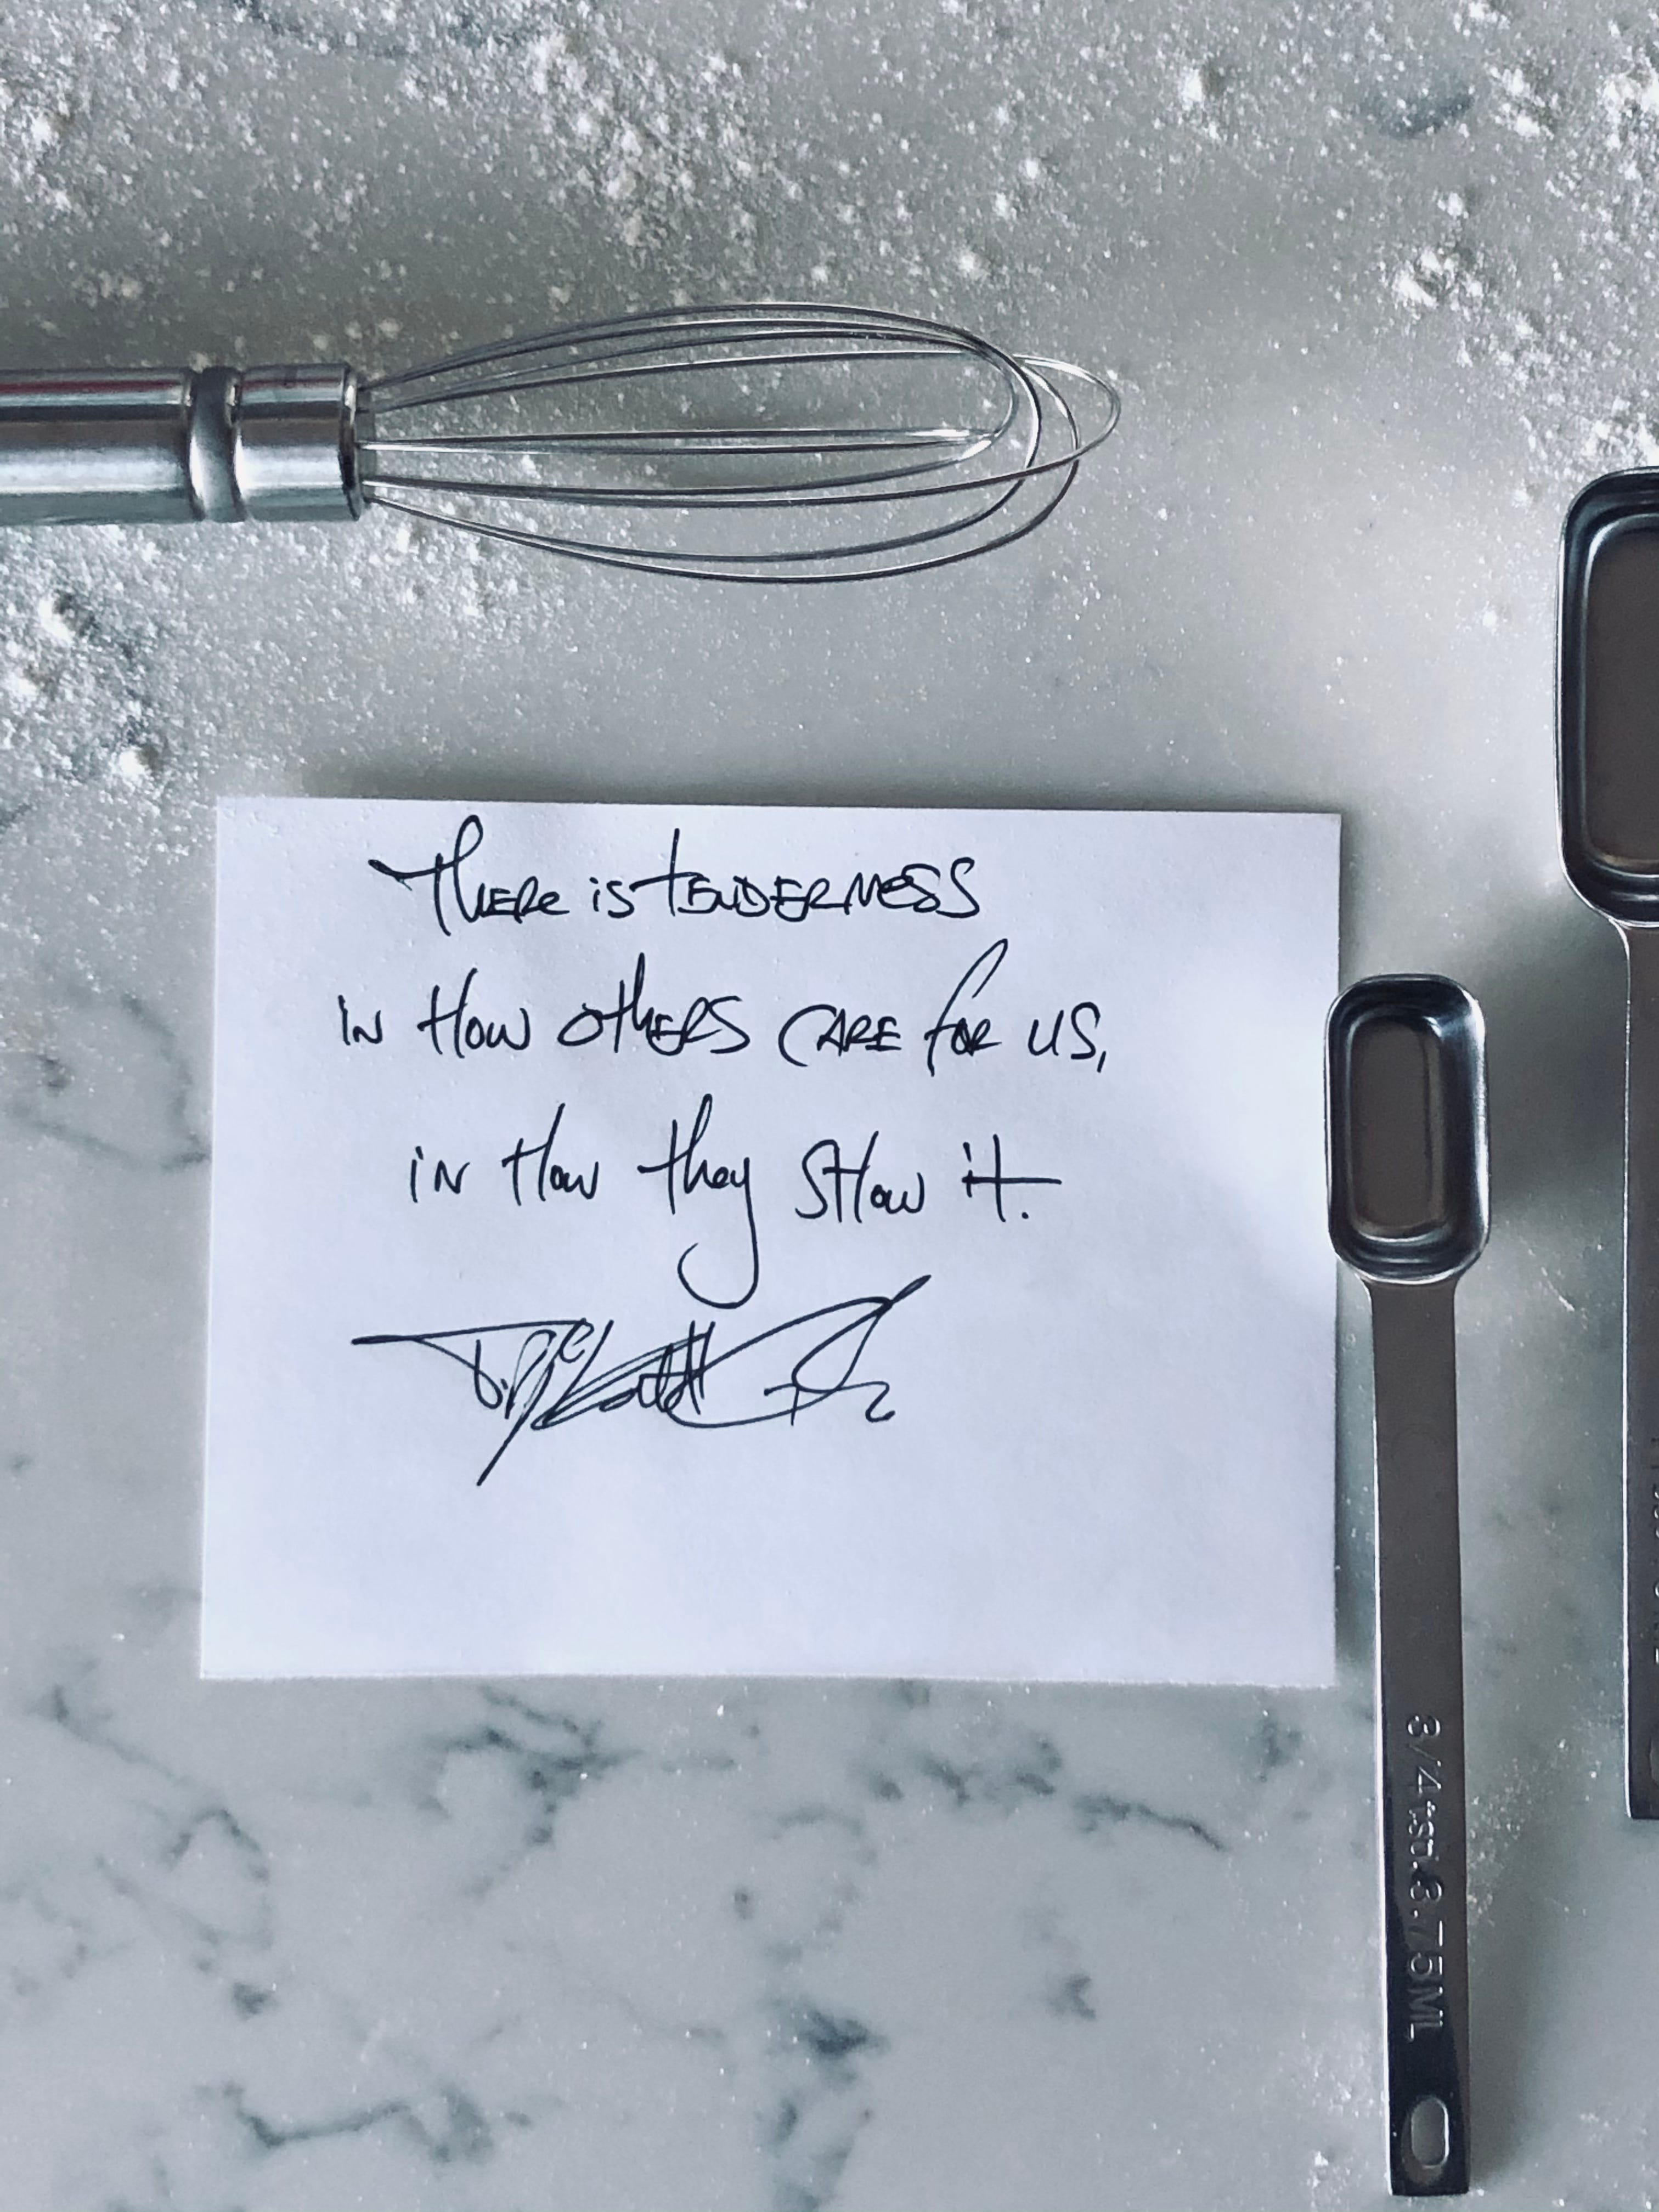 THERE is TENDERNESS
IN How OTHERS CARE for US,
iN How they SHow it.
3/4TSP.3.75ML